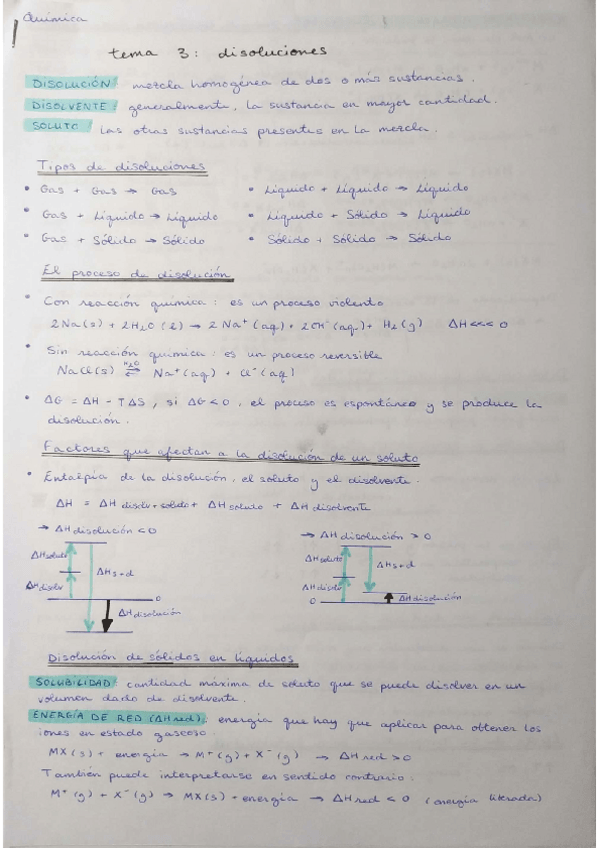 Química
tema 3: disoluciones
DISOLUCIÓN: mezcla homogénea de dos o más sustancias.
DISOLVENTE: generalmente, la sustancia en mayor cantidad.
SOLUTO: las otras sustancias presentes en la mezcla.
Tipos de disoluciones
• Gas + Gas → Gas
• Líquido + Líquido → Líquido
• Gas + Líquido → Líquido
• Líquido + Sólido → Líquido
• Gas + Sólido → Sólido
• Sólido + Sólido → Sólido
El proceso de disolución
• Con reacción química: es un proceso violento
2Na(s) + 2H₂O(l) → 2Na⁺(aq) + 2OH⁻(aq) + H₂(g) ΔH<<< 0
• Sin reacción química: es un proceso reversible
NaCl(s) ⇌ H₂O Na⁺(aq) + Cl⁻(aq)
• ΔG = ΔH - TΔS, si ΔG<0, el proceso es espontáneo y se produce la
disolución.
Factores que afectan a la disolución de un soluto
• Entalpía de la disolución, el soluto y el disolvente.
ΔH = ΔH disolv+soluto + ΔH soluto + ΔH disolvente
→ ΔH disolución < 0
→ ΔH disolución > 0
ΔH soluto
ΔH s+d
ΔH disolv
0
ΔH disolución
ΔH soluto
ΔH s+d
ΔH disolv
0
ΔH disolución
Disolución de sólidos en líquidos
SOLUBILIDAD: cantidad máxima de soluto que se puede disolver en un
volumen dado de disolvente.
ENERGÍA DE RED (ΔH red): energía que hay que aplicar para obtener los
iones en estado gaseoso.
MX(s) + energía → M⁺(g) + X⁻(g) → ΔH red > 0
También puede interpretarse en sentido contrario:
M⁺(g) + X⁻(g) → MX(s) + energía → ΔH red < 0 (energía liberada)